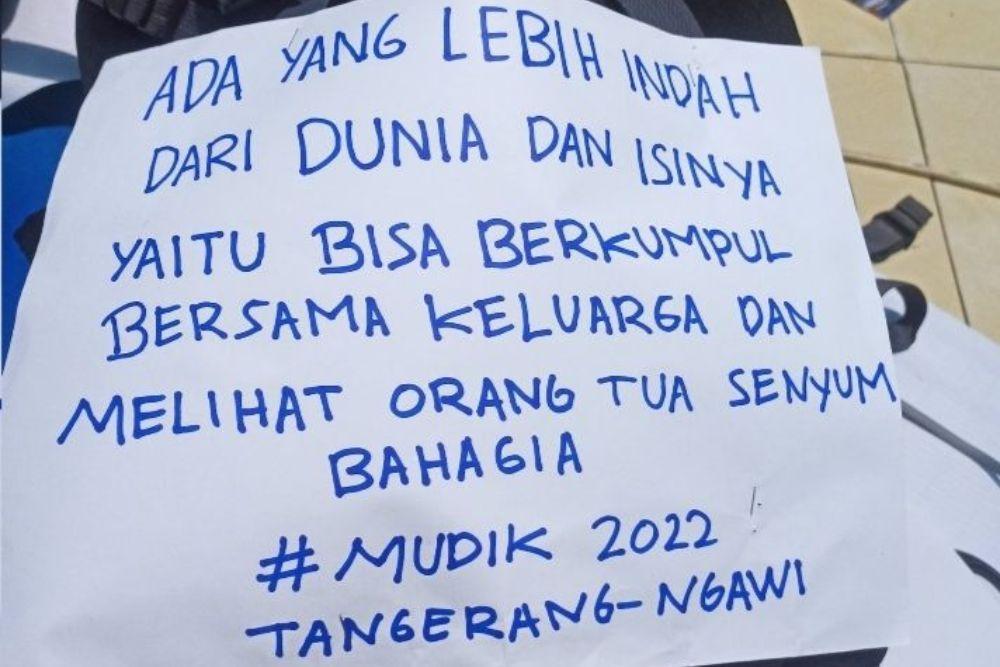 ADA YANG LEBIH INDAH
DARI DUNIA DAN ISINYA
YAITU BISA BERKUMPUL
BERSAMA KELUARGA DAN
MELIHAT ORANG TUA SENYUM
BAHAGIA
# MUDIK 2022
TANGERANG-NGAWI